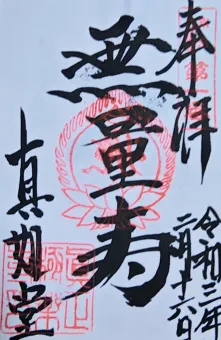 奉拝
令和三年
二月十六日
無量寿
真如堂